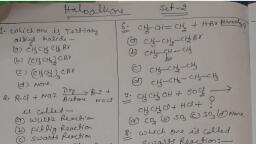 Haloalkane Set-2
1. which one is Tertiary
alkyl halide -
(a) CH3CH2CH2Br
(b) (CH3)2CBr
(c) (CH3)3CBr
(d) None
2. R-Cl + NaI Dry R-I +
Acetone NaCl
is called -
(a) Wurtz Reaction
(b) Fittig Reaction
(c) Swarts Reaction
6. CH3-CH=CH2 + HBr
(a) CH3-CH2-CH2Br
(b) CH3-CH-CH3
Br
(c) CH3-CH-CH3
(d) CH3-CH2-CH2-CH3
7. CH3CH2OH + SOCl2 →
CH3CH2Cl + HCl + ?
(a) CO2 (b) SO2 (c) SO3 (d) None
8. which one is called
Swarts Reaction